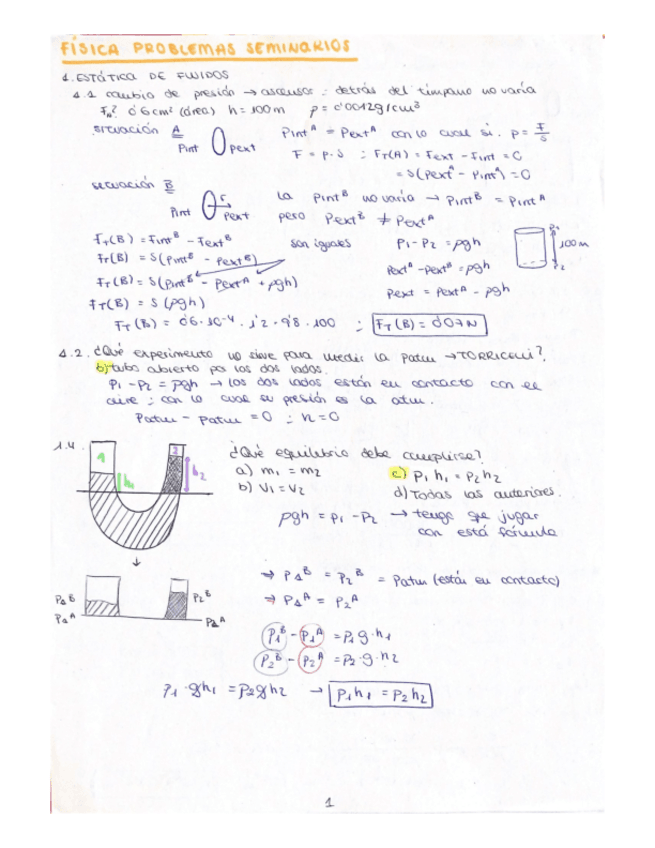 FÍSICA PROBLEMAS SEMINARIOS
1. ESTÁTICA DE FLUIDOS
1.1 cambio de presión → ascensor : detrás del tímpano no varía
0'6 cm² (área) h = 100 m ρ = 0'0012 g/cm³
situación A Pint Pext Pint^A = Pext^A con lo cual si. P = F/S
F = P·S ; F_T(A) = Fext - Fint = 0
= S(Pext^A - Pint^A) = 0
situación B Pint Pext F La Pint^B no varía → Pint^B = Pint^A
pero Pext^B ≠ Pext^A
F_T(B) = Fint^B - Fext^B son iguales P1 - P2 = ρgh 100 m
F_T(B) = S(Pint^B - Pext^B)
Pext^A - Pext^B = ρgh
F_T(B) = S(Pint^B - Pext^A + ρgh)
Pext = Pext^A - ρgh
F_T(B) = S(ρgh)
F_T(B) = 0'6·10^-4 · 1'2 · 9'8 · 100 ; F_T(B) = 0'07 N
1.2. ¿Qué experimento no sirve para medir la Patm → TORRICELLI?
b) tubo abierto por los dos lados.
P1 - P2 = ρgh → los dos lados están en contacto con el
aire ; con lo cual su presión es la atm.
Patm - Patm = 0 ; h = 0
1.4. 1 2 h1 h2 ¿Qué equilibrio debe cumplirse?
a) m1 = m2 c) ρ1 h1 = ρ2 h2
b) V1 = V2 d) Todas las anteriores.
ρgh = P1 - P2 → tengo que jugar
con está fórmula
⇒ P1^B = P2^B = Patm (están en contacto)
P1^B P2^B
⇒ P1^A = P2^A
P1^A P2^A
P1^B - P1^A = ρ1 g·h1
P2^B - P2^A = ρ2·g·h2
ρ1·gh1 = ρ2gh2 → ρ1h1 = ρ2h2
1